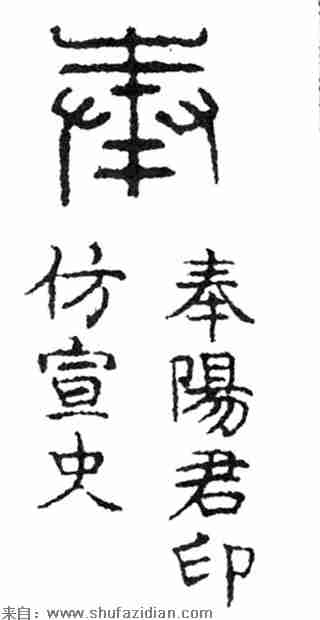 奉
奉陽君印
仿宣史
来自：www.shufazidian.com